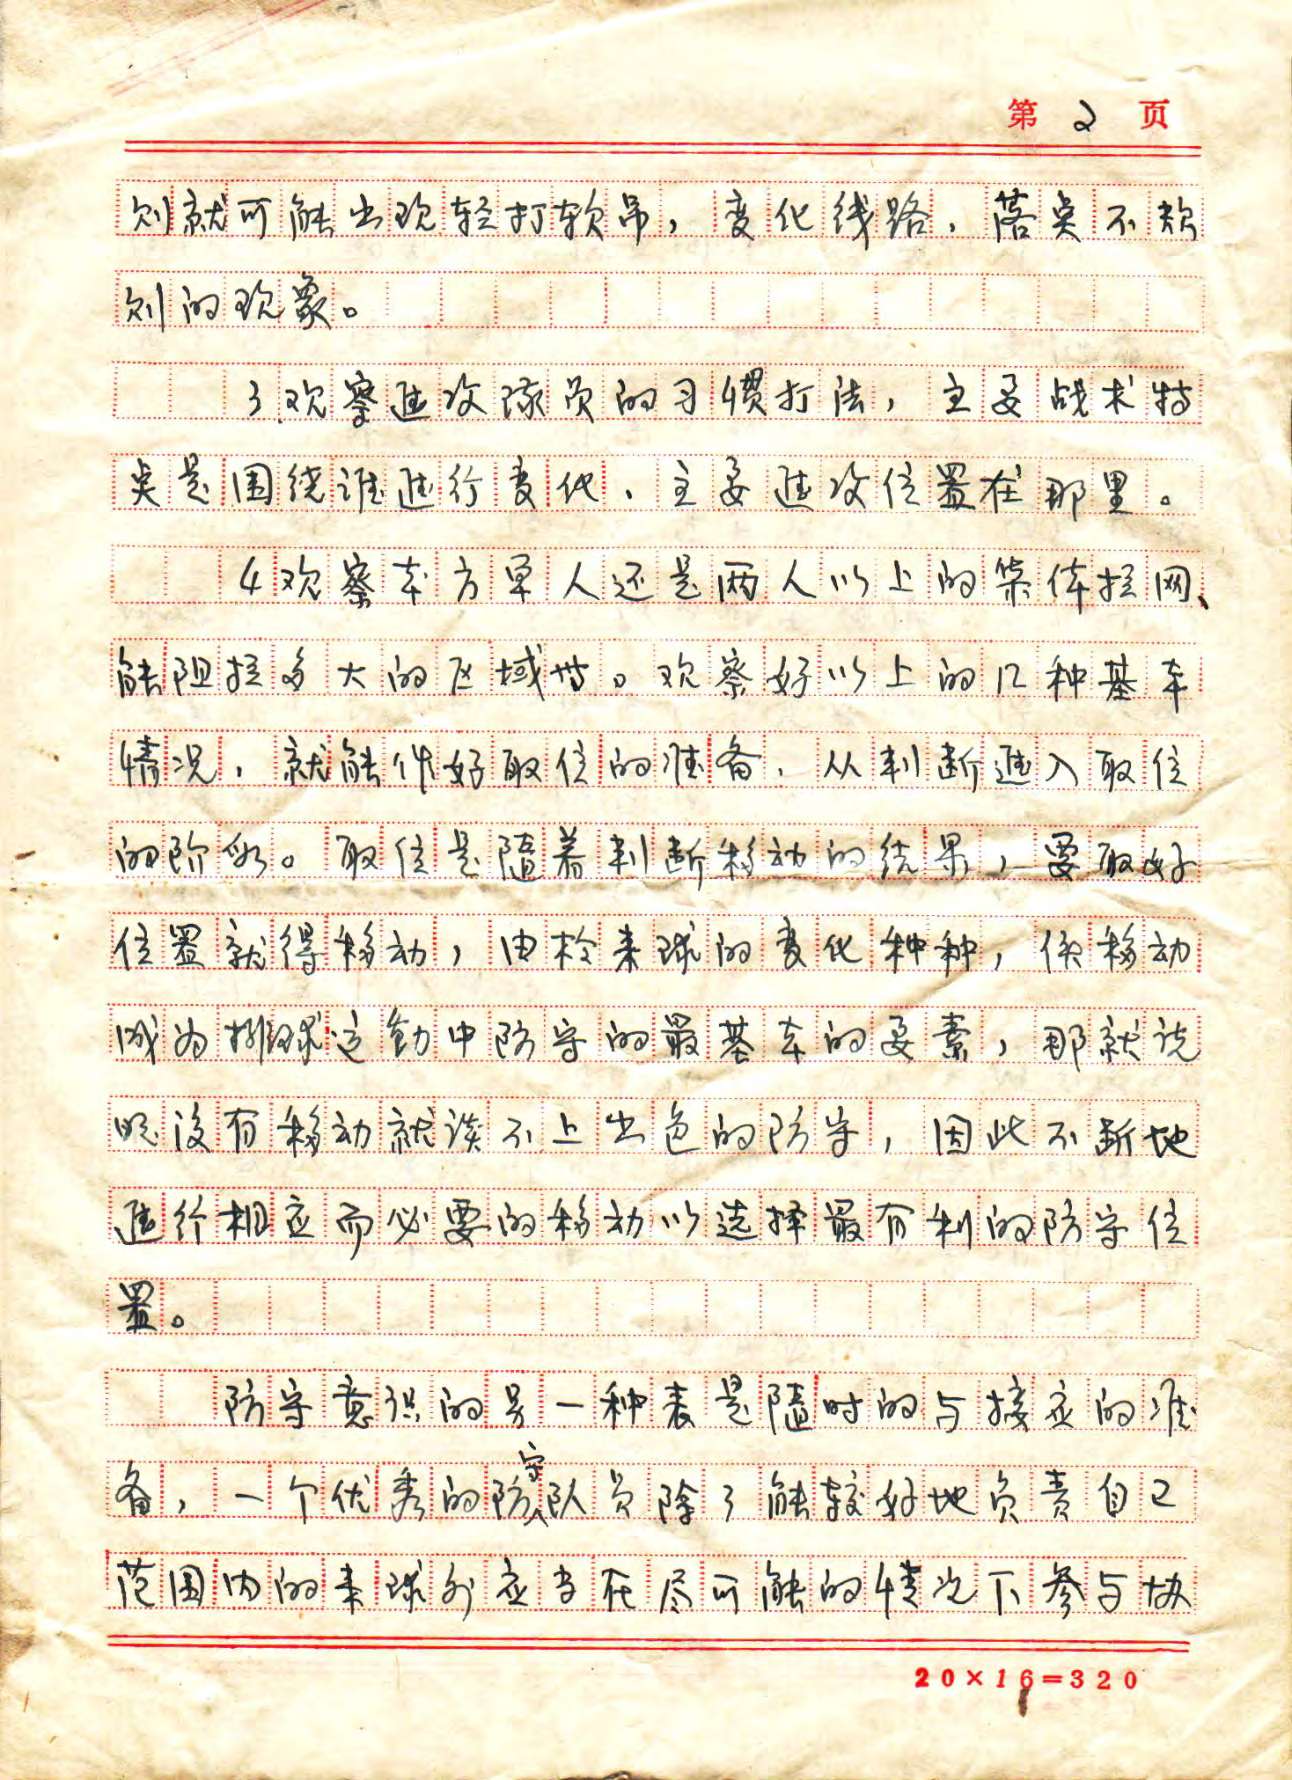 第2页
则就可能出现轻打软吊，变化线路，落点不规
则的现象。
3.观察进攻队员的习惯打法，主要战术特
点是围绕谁进行变化，主要进攻位置在那里。
4观察本方单人还是两人以上的集体拦网、
能阻拦多大的区域带。观察好以上的几种基本
情况，就能作好取位的准备，从判断进入取位
的阶段。取位是随着判断移动的结果，要取好
位置就得移动，由于来球的变化种种，使移动
成为排球运动中防守的最基本的要素，那就说
明没有移动就谈不上出色的防守，因此不断地
进行相应而必要的移动以选择最有利的防守位
置。
防守意识的另一种表是随时的与接应的准
备，一个优秀的防守队员除了能较好地负责自己
范围内的来球外应当在尽可能的情况下参与协
20×16=320